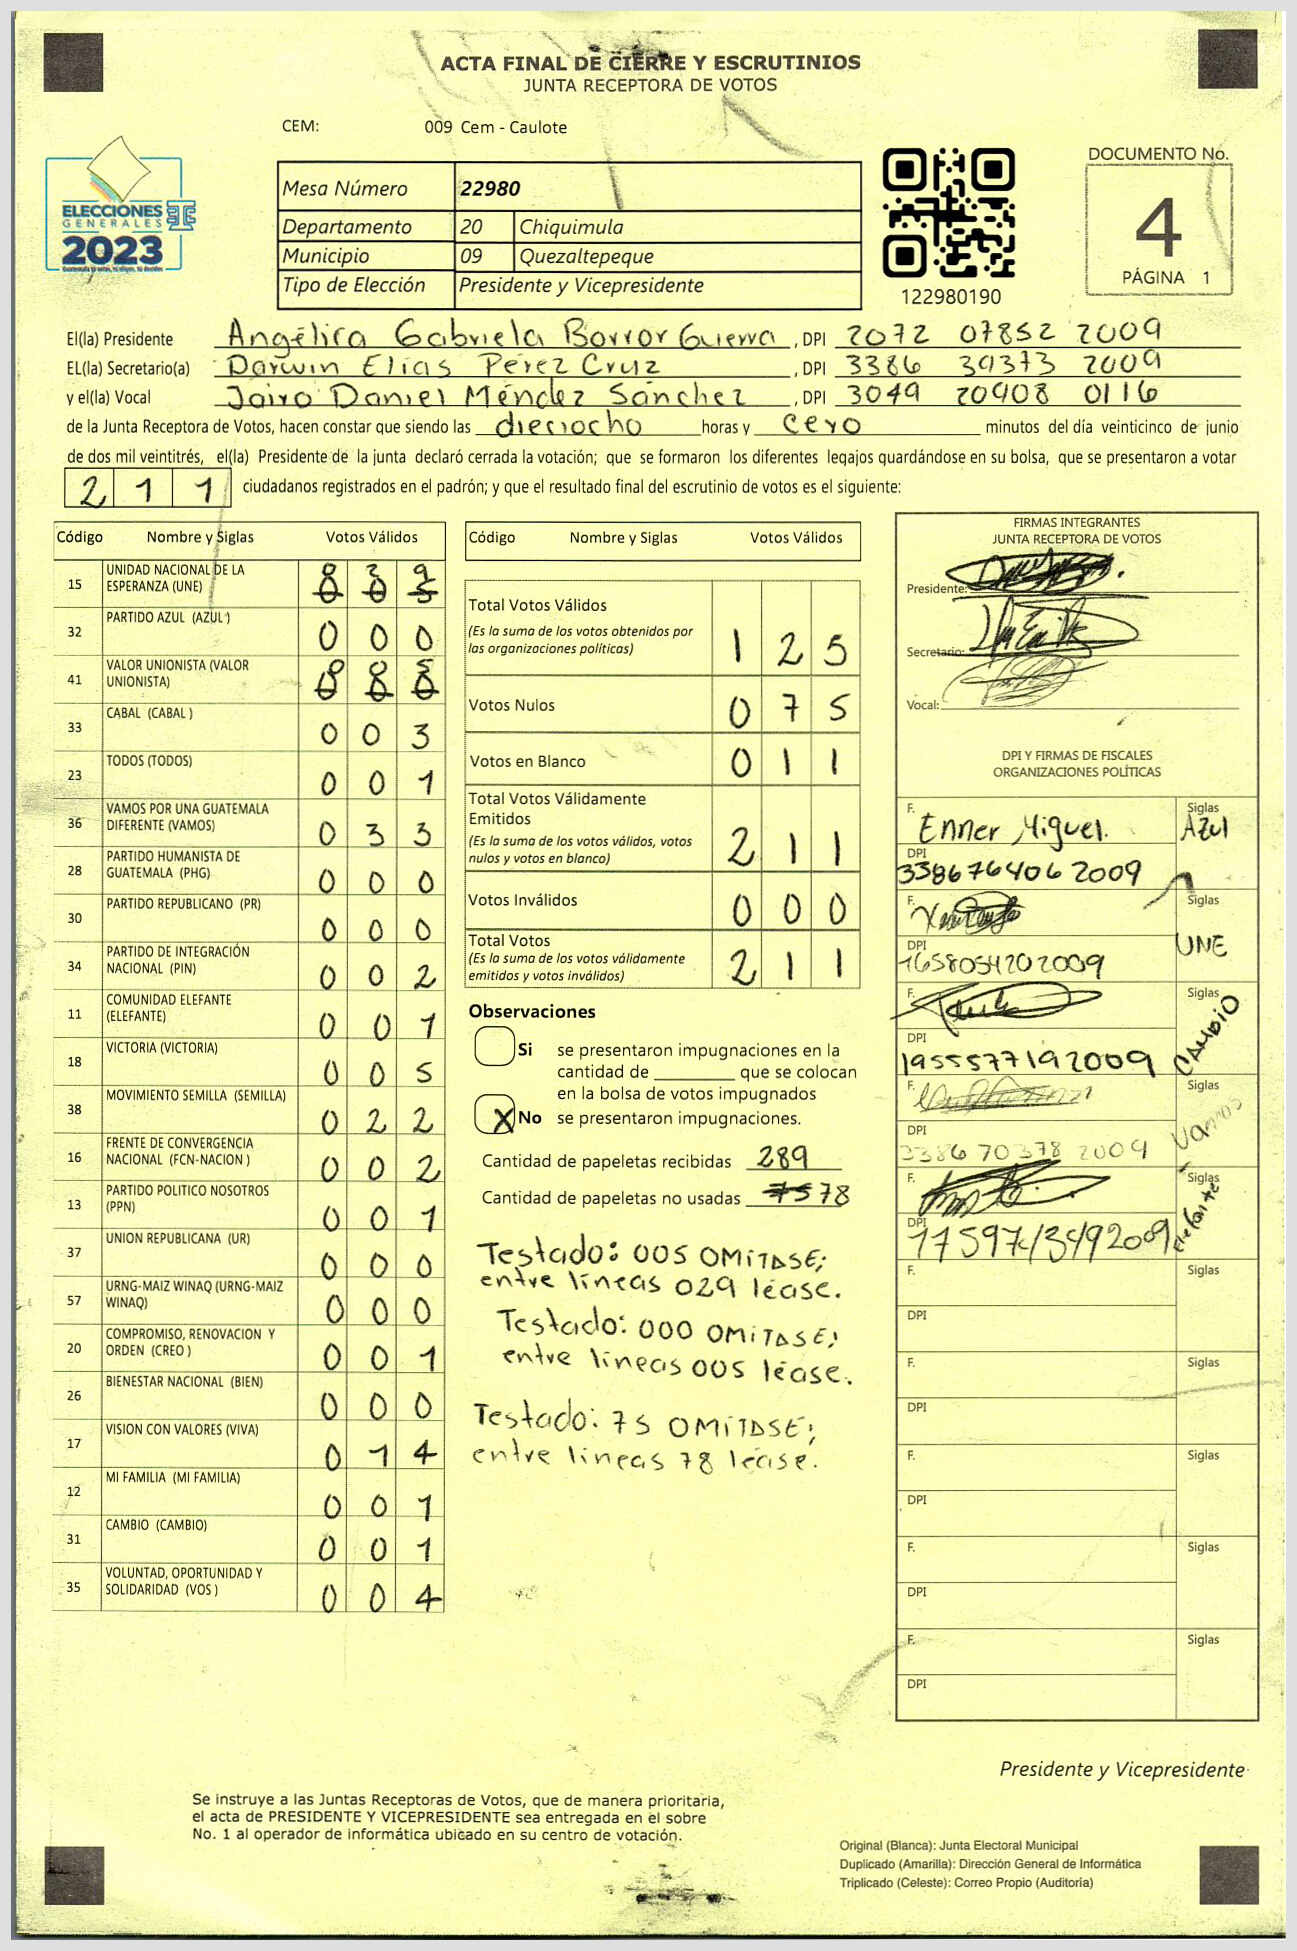 ACTA FINAL DE CIERRE Y ESCRUTINIOS
JUNTA RECEPTORA DE VOTOS
CEM: 009 Cem - Caulote
ELECCIONES
GENERALES
2023
Mesa Número 22980
Departamento 20 Chiquimula
Municipio 09 Quezaltepeque
Tipo de Elección Presidente y Vicepresidente
122980190
DOCUMENTO No.
4
PÁGINA 1
El(la) Presidente Angélica Gabriela Borror Guerra, DPI 2072 07852 2009
EL(la) Secretario(a) Darwin Elías Pérez Cruz, DPI 3386 39373 2009
y el(la) Vocal Jairo Daniel Méndez Sánchez, DPI 3049 20408 0116
de la Junta Receptora de Votos, hacen constar que siendo las dieciocho horas y cero minutos del día veinticinco de junio
de dos mil veintitrés, el(la) Presidente de la junta declaró cerrada la votación; que se formaron los diferentes legajos guardándose en su bolsa, que se presentaron a votar
211 ciudadanos registrados en el padrón; y que el resultado final del escrutinio de votos es el siguiente:
Código Nombre y Siglas Votos Válidos
15 UNIDAD NACIONAL DE LA
ESPERANZA (UNE)
32 PARTIDO AZUL (AZUL) 0 0 0
41 VALOR UNIONISTA (VALOR
UNIONISTA)
33 CABAL (CABAL) 0 0 3
23 TODOS (TODOS) 0 0 1
36 VAMOS POR UNA GUATEMALA
DIFERENTE (VAMOS) 0 3 3
28 PARTIDO HUMANISTA DE
GUATEMALA (PHG) 0 0 0
30 PARTIDO REPUBLICANO (PR) 0 0 0
34 PARTIDO DE INTEGRACIÓN
NACIONAL (PIN) 0 0 2
11 COMUNIDAD ELEFANTE
(ELEFANTE) 0 0 1
18 VICTORIA (VICTORIA) 0 0 5
38 MOVIMIENTO SEMILLA (SEMILLA) 0 2 2
16 FRENTE DE CONVERGENCIA
NACIONAL (FCN-NACION) 0 0 2
13 PARTIDO POLITICO NOSOTROS
(PPN) 0 0 1
37 UNION REPUBLICANA (UR) 0 0 0
57 URNG-MAIZ WINAQ (URNG-MAIZ
WINAQ) 0 0 0
20 COMPROMISO, RENOVACION Y
ORDEN (CREO) 0 0 1
26 BIENESTAR NACIONAL (BIEN) 0 0 0
17 VISION CON VALORES (VIVA) 0 1 4
12 MI FAMILIA (MI FAMILIA) 0 0 1
31 CAMBIO (CAMBIO) 0 0 1
35 VOLUNTAD, OPORTUNIDAD Y
SOLIDARIDAD (VOS) 0 0 4
Código Nombre y Siglas Votos Válidos
Total Votos Válidos
(Es la suma de los votos obtenidos por
las organizaciones políticas) 1 2 5
Votos Nulos 0 7 5
Votos en Blanco 0 1 1
Total Votos Válidamente
Emitidos
(Es la suma de los votos válidos, votos
nulos y votos en blanco) 2 1 1
Votos Inválidos 0 0 0
Total Votos
(Es la suma de los votos válidamente
emitidos y votos inválidos) 2 1 1
Observaciones
Si se presentaron impugnaciones en la
cantidad de ________ que se colocan
en la bolsa de votos impugnados
X No se presentaron impugnaciones.
Cantidad de papeletas recibidas 289
Cantidad de papeletas no usadas 75 78
Testado: 005 OMITASE;
entre líneas 029 léase.
Testado: 000 OMITASE;
entre líneas 005 léase.
Testado: 75 OMITASE;
entre líneas 78 léase.
FIRMAS INTEGRANTES
JUNTA RECEPTORA DE VOTOS
Presidente:
Secretario:
Vocal:
DPI Y FIRMAS DE FISCALES
ORGANIZACIONES POLÍTICAS
F. Enner Miguel. Siglas Azul
DPI 338676406 2009
F. Siglas UNE
DPI 1658054202009
F. Siglas CAMBIO
DPI 1955577192009
F. Siglas Vamos
DPI 3386 70378 2009
F. Siglas Elefante
DPI
F. Siglas
DPI
F. Siglas
DPI
F. Siglas
DPI
F. Siglas
DPI
F. Siglas
DPI
Presidente y Vicepresidente
Se instruye a las Juntas Receptoras de Votos, que de manera prioritaria,
el acta de PRESIDENTE Y VICEPRESIDENTE sea entregada en el sobre
No. 1 al operador de informática ubicado en su centro de votación.
Original (Blanca): Junta Electoral Municipal
Duplicado (Amarilla): Dirección General de Informática
Triplicado (Celeste): Correo Propio (Auditoría)